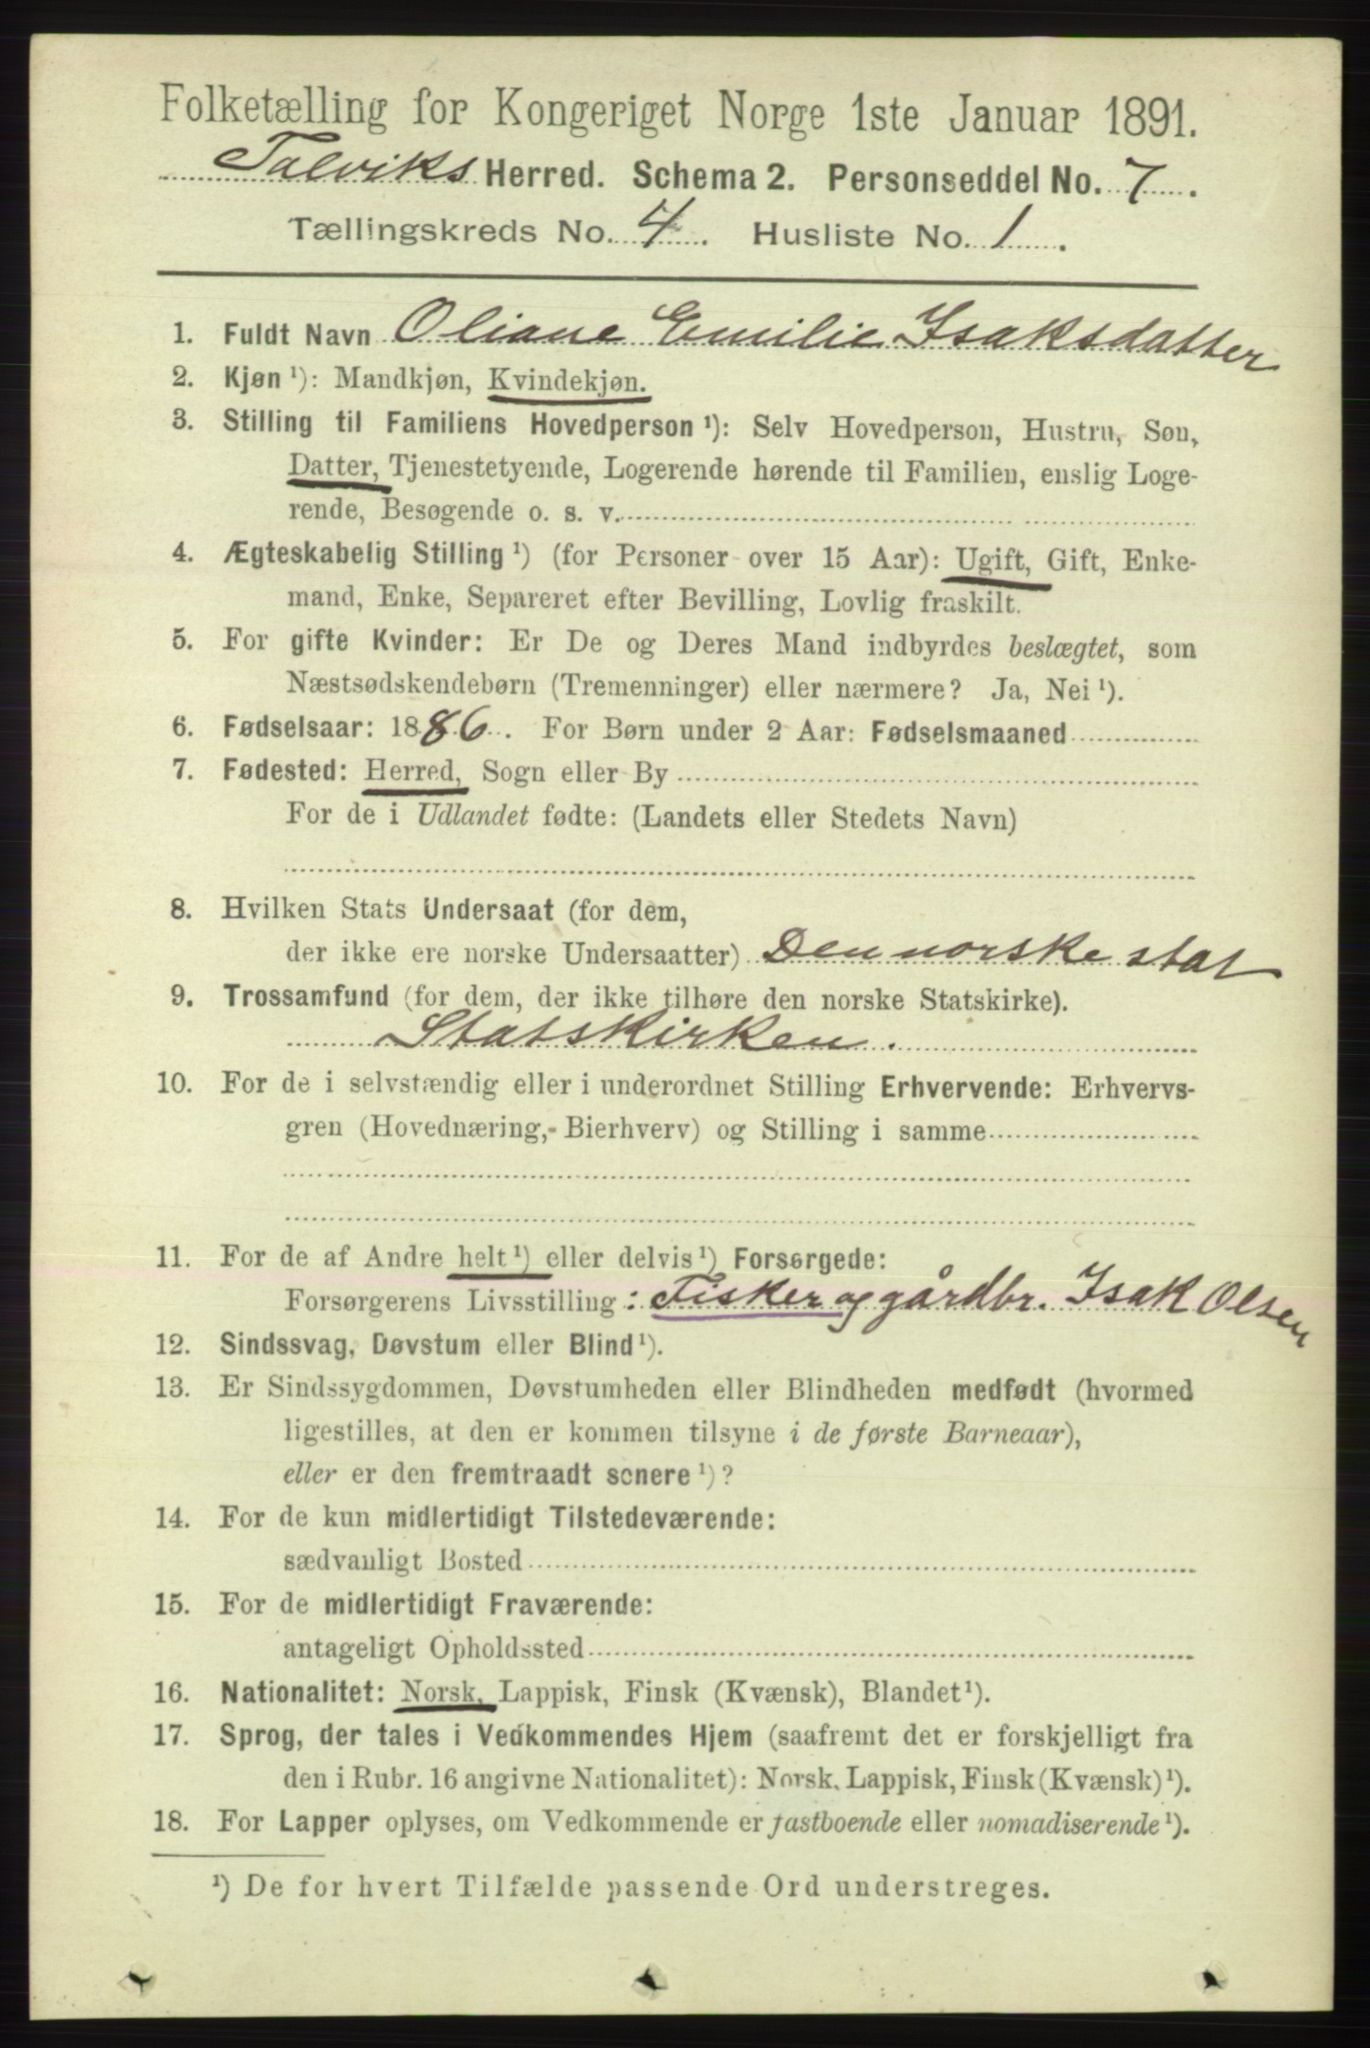 Folketælling for Kongeriget Norge 1ste Januar 1891.
Talviks Herred. Schema 2. Personseddel No. 7.
Tællingskreds No. 4. Husliste No. 1.
1. Fuldt Navn Oliane Emilie Isaksdatter
2. Kjøn ¹): Mandkjøn, Kvindekjøn.
3. Stilling til Familiens Hovedperson ¹): Selv Hovedperson, Hustru, Søn,
Datter, Tjenestetyende, Logerende hørende til Familien, enslig Loge-
rende, Besøgende o. s. v.
4. Ægteskabelig Stilling ¹) (for Personer over 15 Aar): Ugift, Gift, Enke-
mand, Enke, Separeret efter Bevilling, Lovlig fraskilt.
5. For gifte Kvinder: Er De og Deres Mand indbyrdes beslægtet, som
Næstsødskendebørn (Tremenninger) eller nærmere? Ja, Nei ¹).
6. Fødselsaar: 1886. For Børn under 2 Aar: Fødselsmaaned
7. Fødested: Herred, Sogn eller By
For de i Udlandet fødte: (Landets eller Stedets Navn)
8. Hvilken Stats Undersaat (for dem,
der ikke ere norske Undersaatter) Den norske stat
9. Trossamfund (for dem, der ikke tilhøre den norske Statskirke).
Statskirken.
10. For de i selvstændig eller i underordnet Stilling Erhvervende: Erhvervs-
gren (Hovednæring, Bierhverv) og Stilling i samme
11. For de af Andre helt ¹) eller delvis ¹) Forsørgede:
Forsørgerens Livsstilling: Fisker og gårdbr. Isak Olsen
12. Sindssvag, Døvstum eller Blind ¹).
13. Er Sindssygdommen, Døvstumheden eller Blindheden medfødt (hvormed
ligestilles, at den er kommen tilsyne i de første Barneaar),
eller er den fremtraadt senere ¹)?
14. For de kun midlertidigt Tilstedeværende:
sædvanligt Bosted
15. For de midlertidigt Fraværende:
antageligt Opholdssted
16. Nationalitet: Norsk, Lappisk, Finsk (Kvænsk), Blandet ¹).
17. Sprog, der tales i Vedkommendes Hjem (saafremt det er forskjelligt fra
den i Rubr. 16 angivne Nationalitet): Norsk, Lappisk, Finsk (Kvænsk) ¹).
18. For Lapper oplyses, om Vedkommende er fastboende eller nomadiserende ¹).
¹) De for hvert Tilfælde passende Ord understreges.